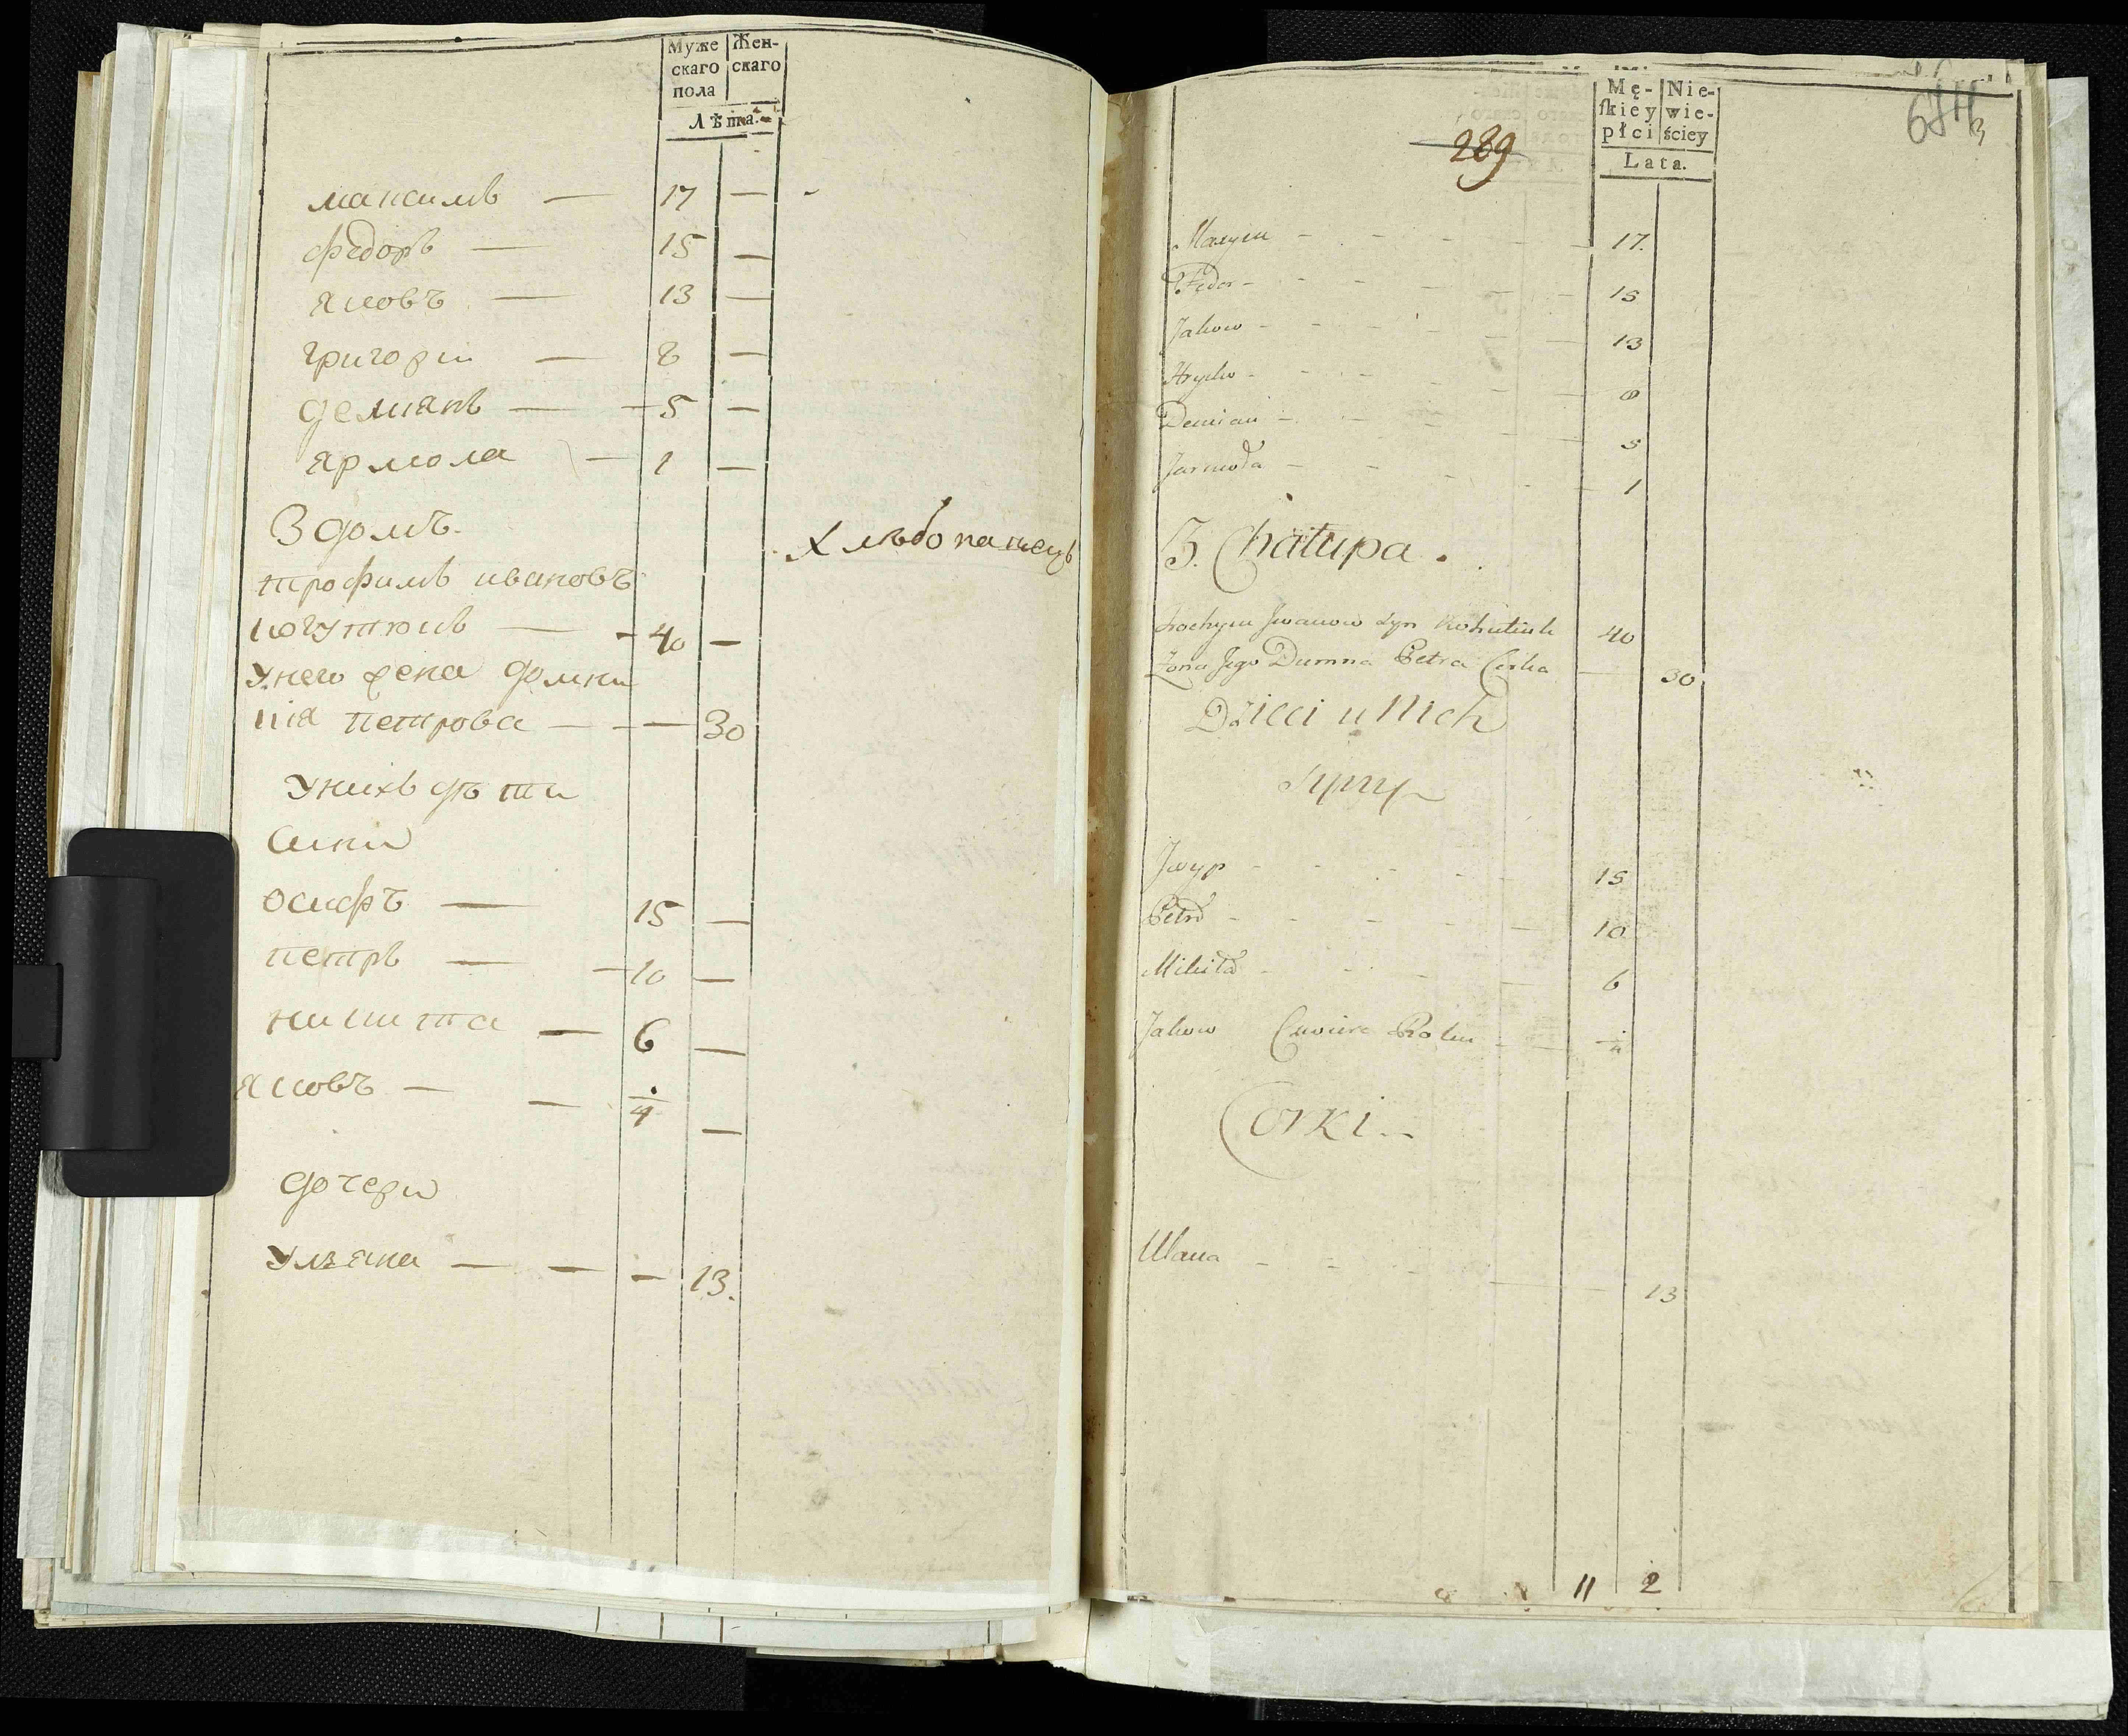 Муже Жен-
скаго скаго
пола
Лѣта.
максимъ — 17 —
федоръ — 15 —
яковъ — 13 —
григори — 8 —
демиянъ — 5 —
ярмола — 1 —
3 домъ.
Хлѣбопашецъ
трофимъ ивановъ
когутюкъ — 40 —
У него жена домки
кія петрова — — 30
У нихъ дѣти
сини
осифъ — 15 —
петръ — 10 —
никита — 6 —
яковъ — — 1/4 —
дочери
Улзяна — — — 13.
289
Mę- Nie-
ſkiey wie-
płci ściey
Lata.
Maxym 17.
Fedor 15
Jakow 13
Hryćko 8
Demian 5
Jarmoła 1
3. Chałupa.
Trochym Jwanow Syn Kohutiuk 40
Żona Jego Dumna Petra Corka 30
Dzieci u Nich
Syny
Jozyp 15
Petro 10
Mikita 6
Jakow Cwierc Roku 1/4
Corki
Ulana 13
11 2